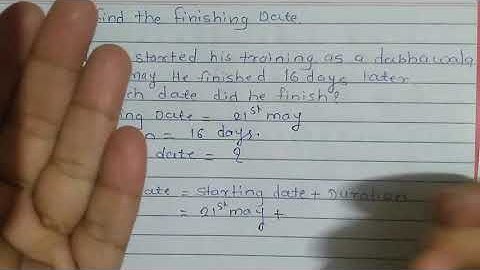 find the finishing Date
started his training as a dabbawala
may He finished 16 days later
date did he finish?
Date = 21st may
= 16 days.
date = ?
= starting date + Duration
= 21st may +